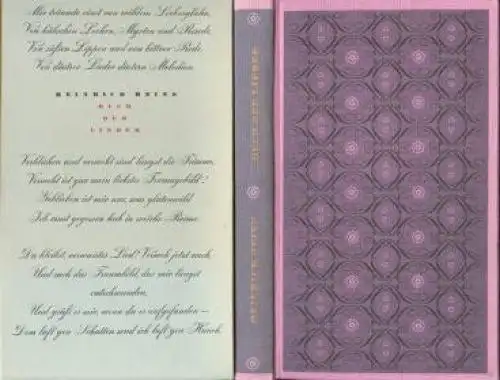 Mir träumte einst von wildem Liebesglühn,
Von hübschen Locken, Myrten und Resede,
Von süßen Lippen und von bittrer Rede,
Von düstrer Lieder düstern Melodien.
HEINRICH HEINE
BUCH
DER
LIEDER
Verblichen und verweht sind längst die Träume,
Verweht ist gar mein liebstes Traumgebild!
Geblieben ist mir nur, was glutenwild
Ich einst gegossen hab in weiche Reime.
Du bliebst, verwaistes Lied! Verweh jetzt auch,
Und such das Traumbild, das mir längst
entschwunden,
Und grüß es mir, wenn du es aufgefunden –
Dem luft'gen Schatten send ich luft'gen Hauch.
HEINRICH HEINE
BUCH DER LIEDER